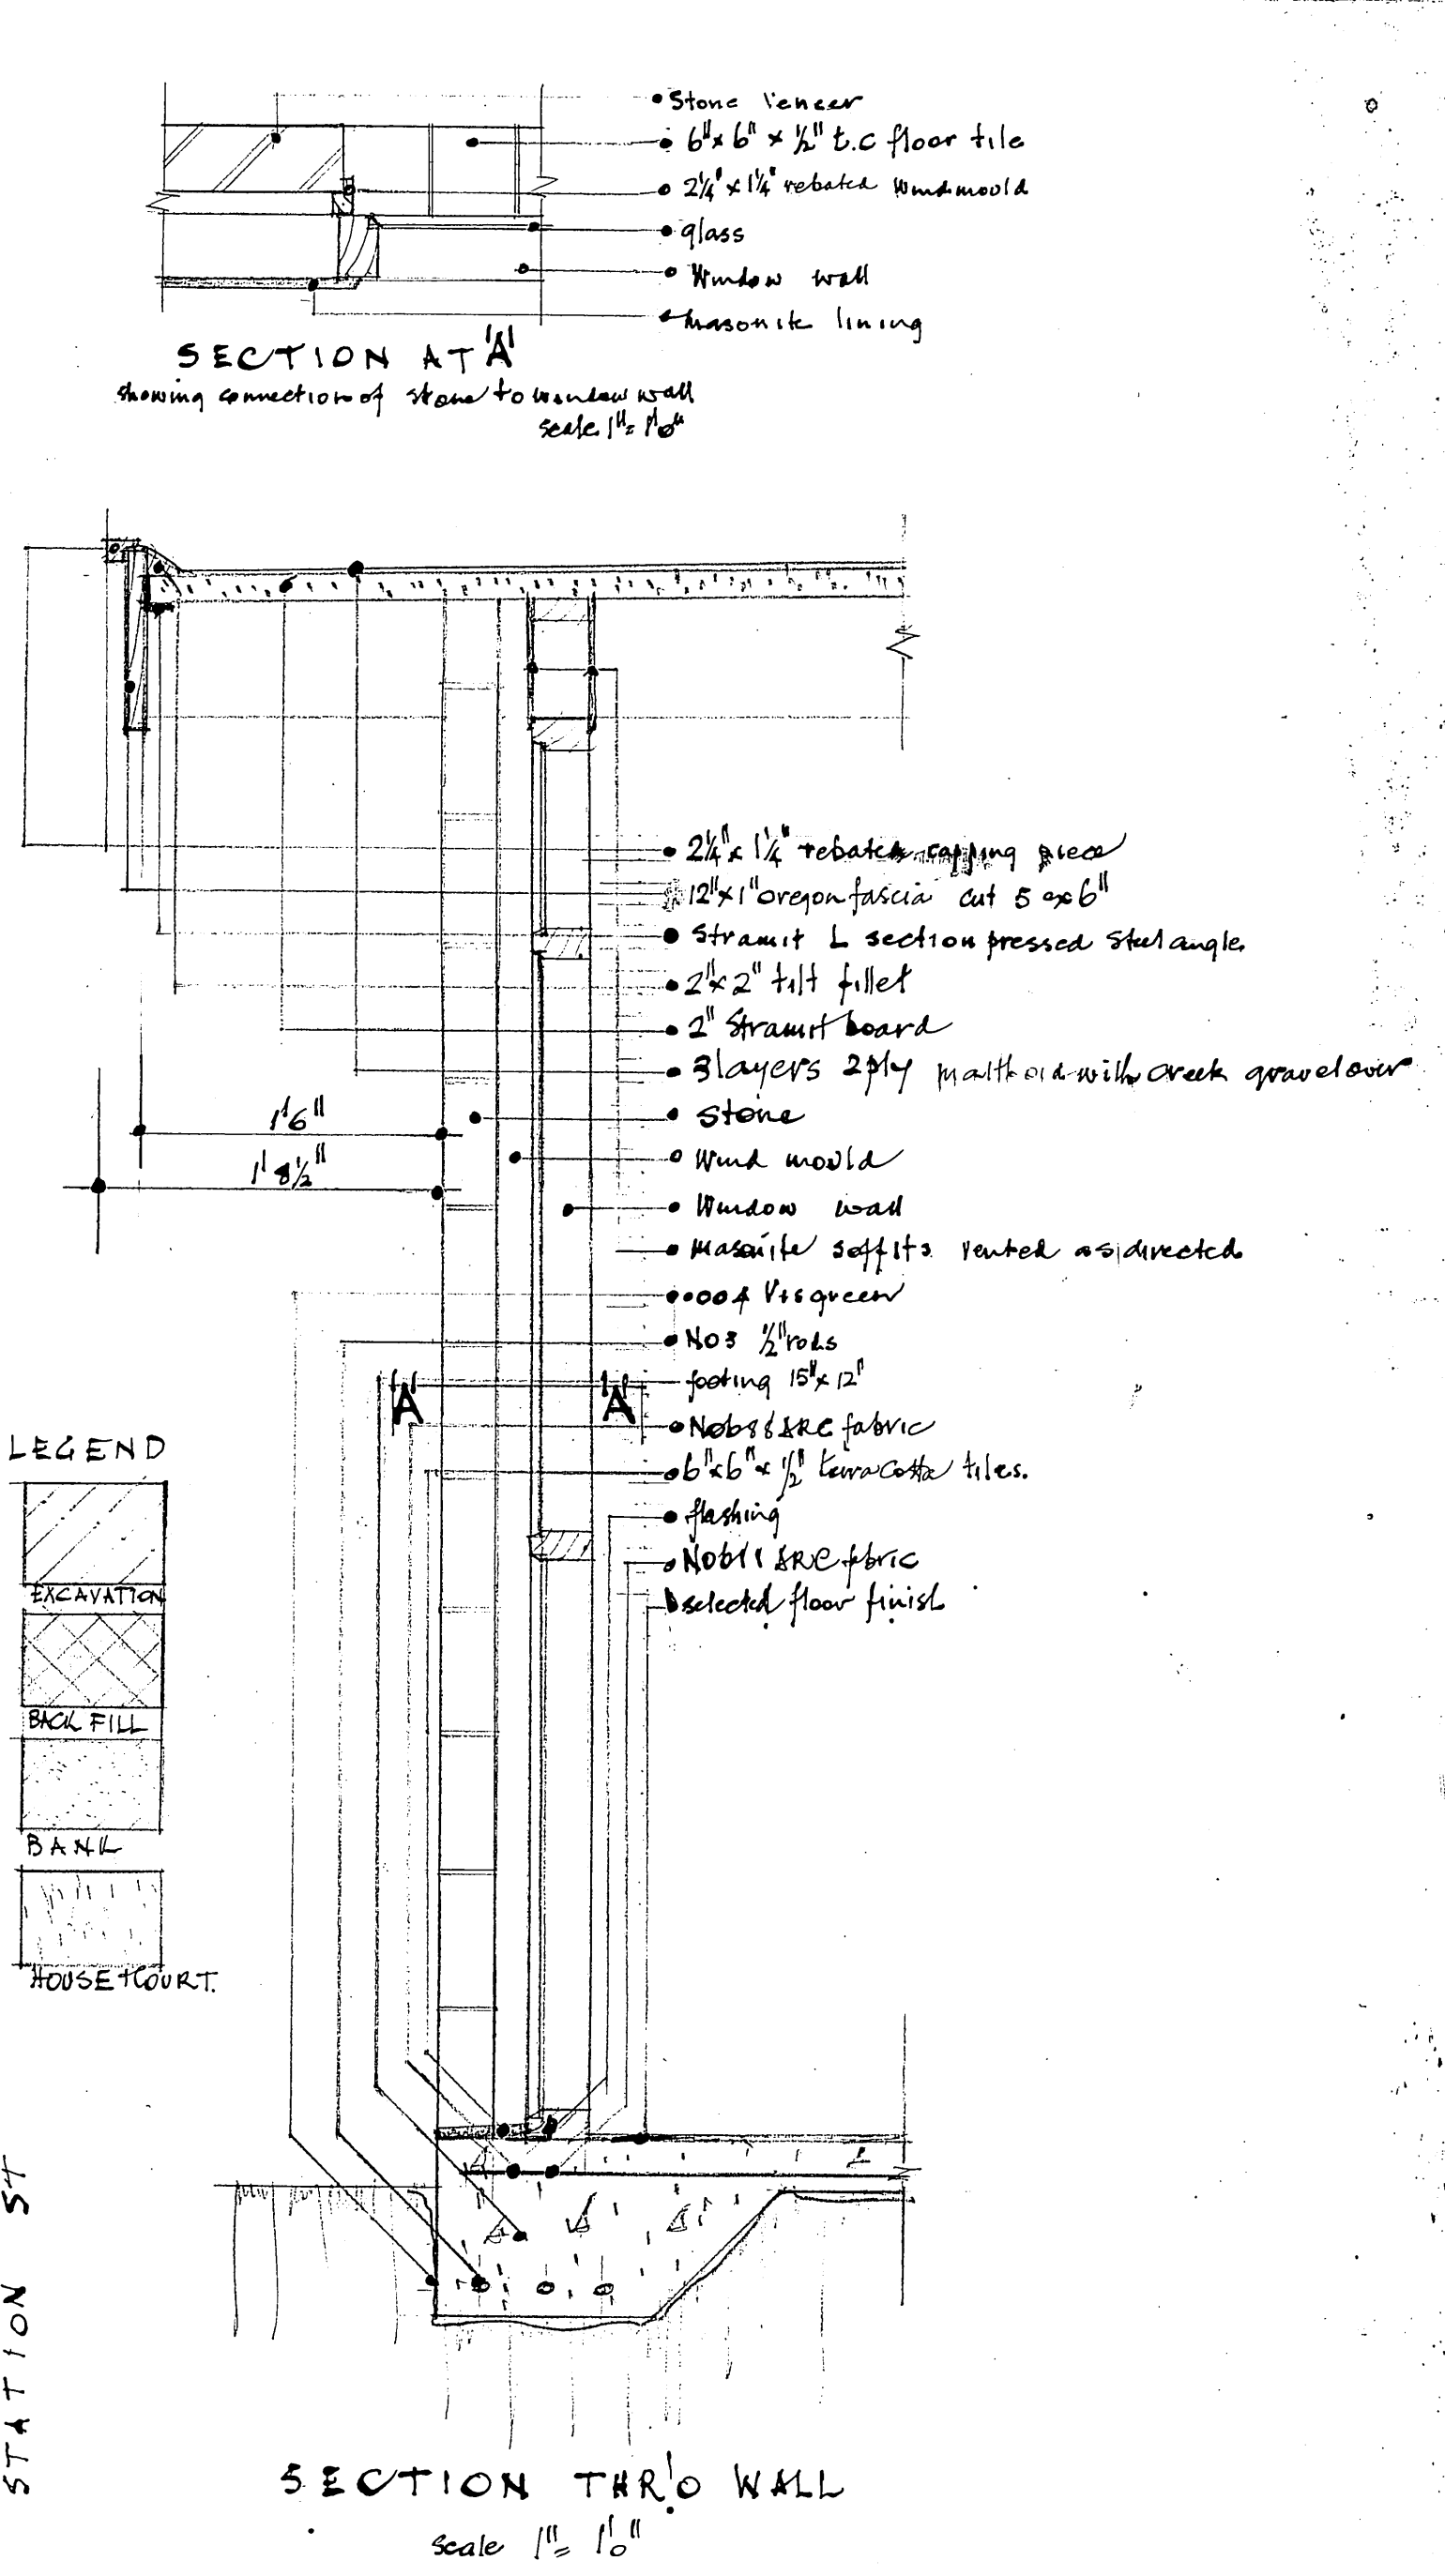 Stone Veneer
6" x 6" x ½" t.c floor tile
2¼" x 1¼" rebated wind mould
glass
Window wall
masonite lining
SECTION AT 'A'
showing connection of stone to window wall
scale 1" = 1'0"
2¼" x 1¼" rebated capping piece
12" x 1" oregon fascia cut 5 ex 6"
Stramit L section pressed steel angle
2" x 2" tilt fillet
2" Stramit board
3 layers 2 ply malthoid with creek gravel over
Stone
Wind mould
Window wall
masonite soffits vented as directed
1'6"
1'8½"
.004 Visqueen
No 3 ½" rods
footing 15" x 12"
'A' 'A'
ARC fabric
6" x 6" x ½" terra cotta tiles.
flashing
ARC fabric
selected floor finish
LEGEND
EXCAVATION
BACK FILL
BANK
HOUSE + COURT.
STATION ST
SECTION THR'O WALL
scale 1" = 1'0"